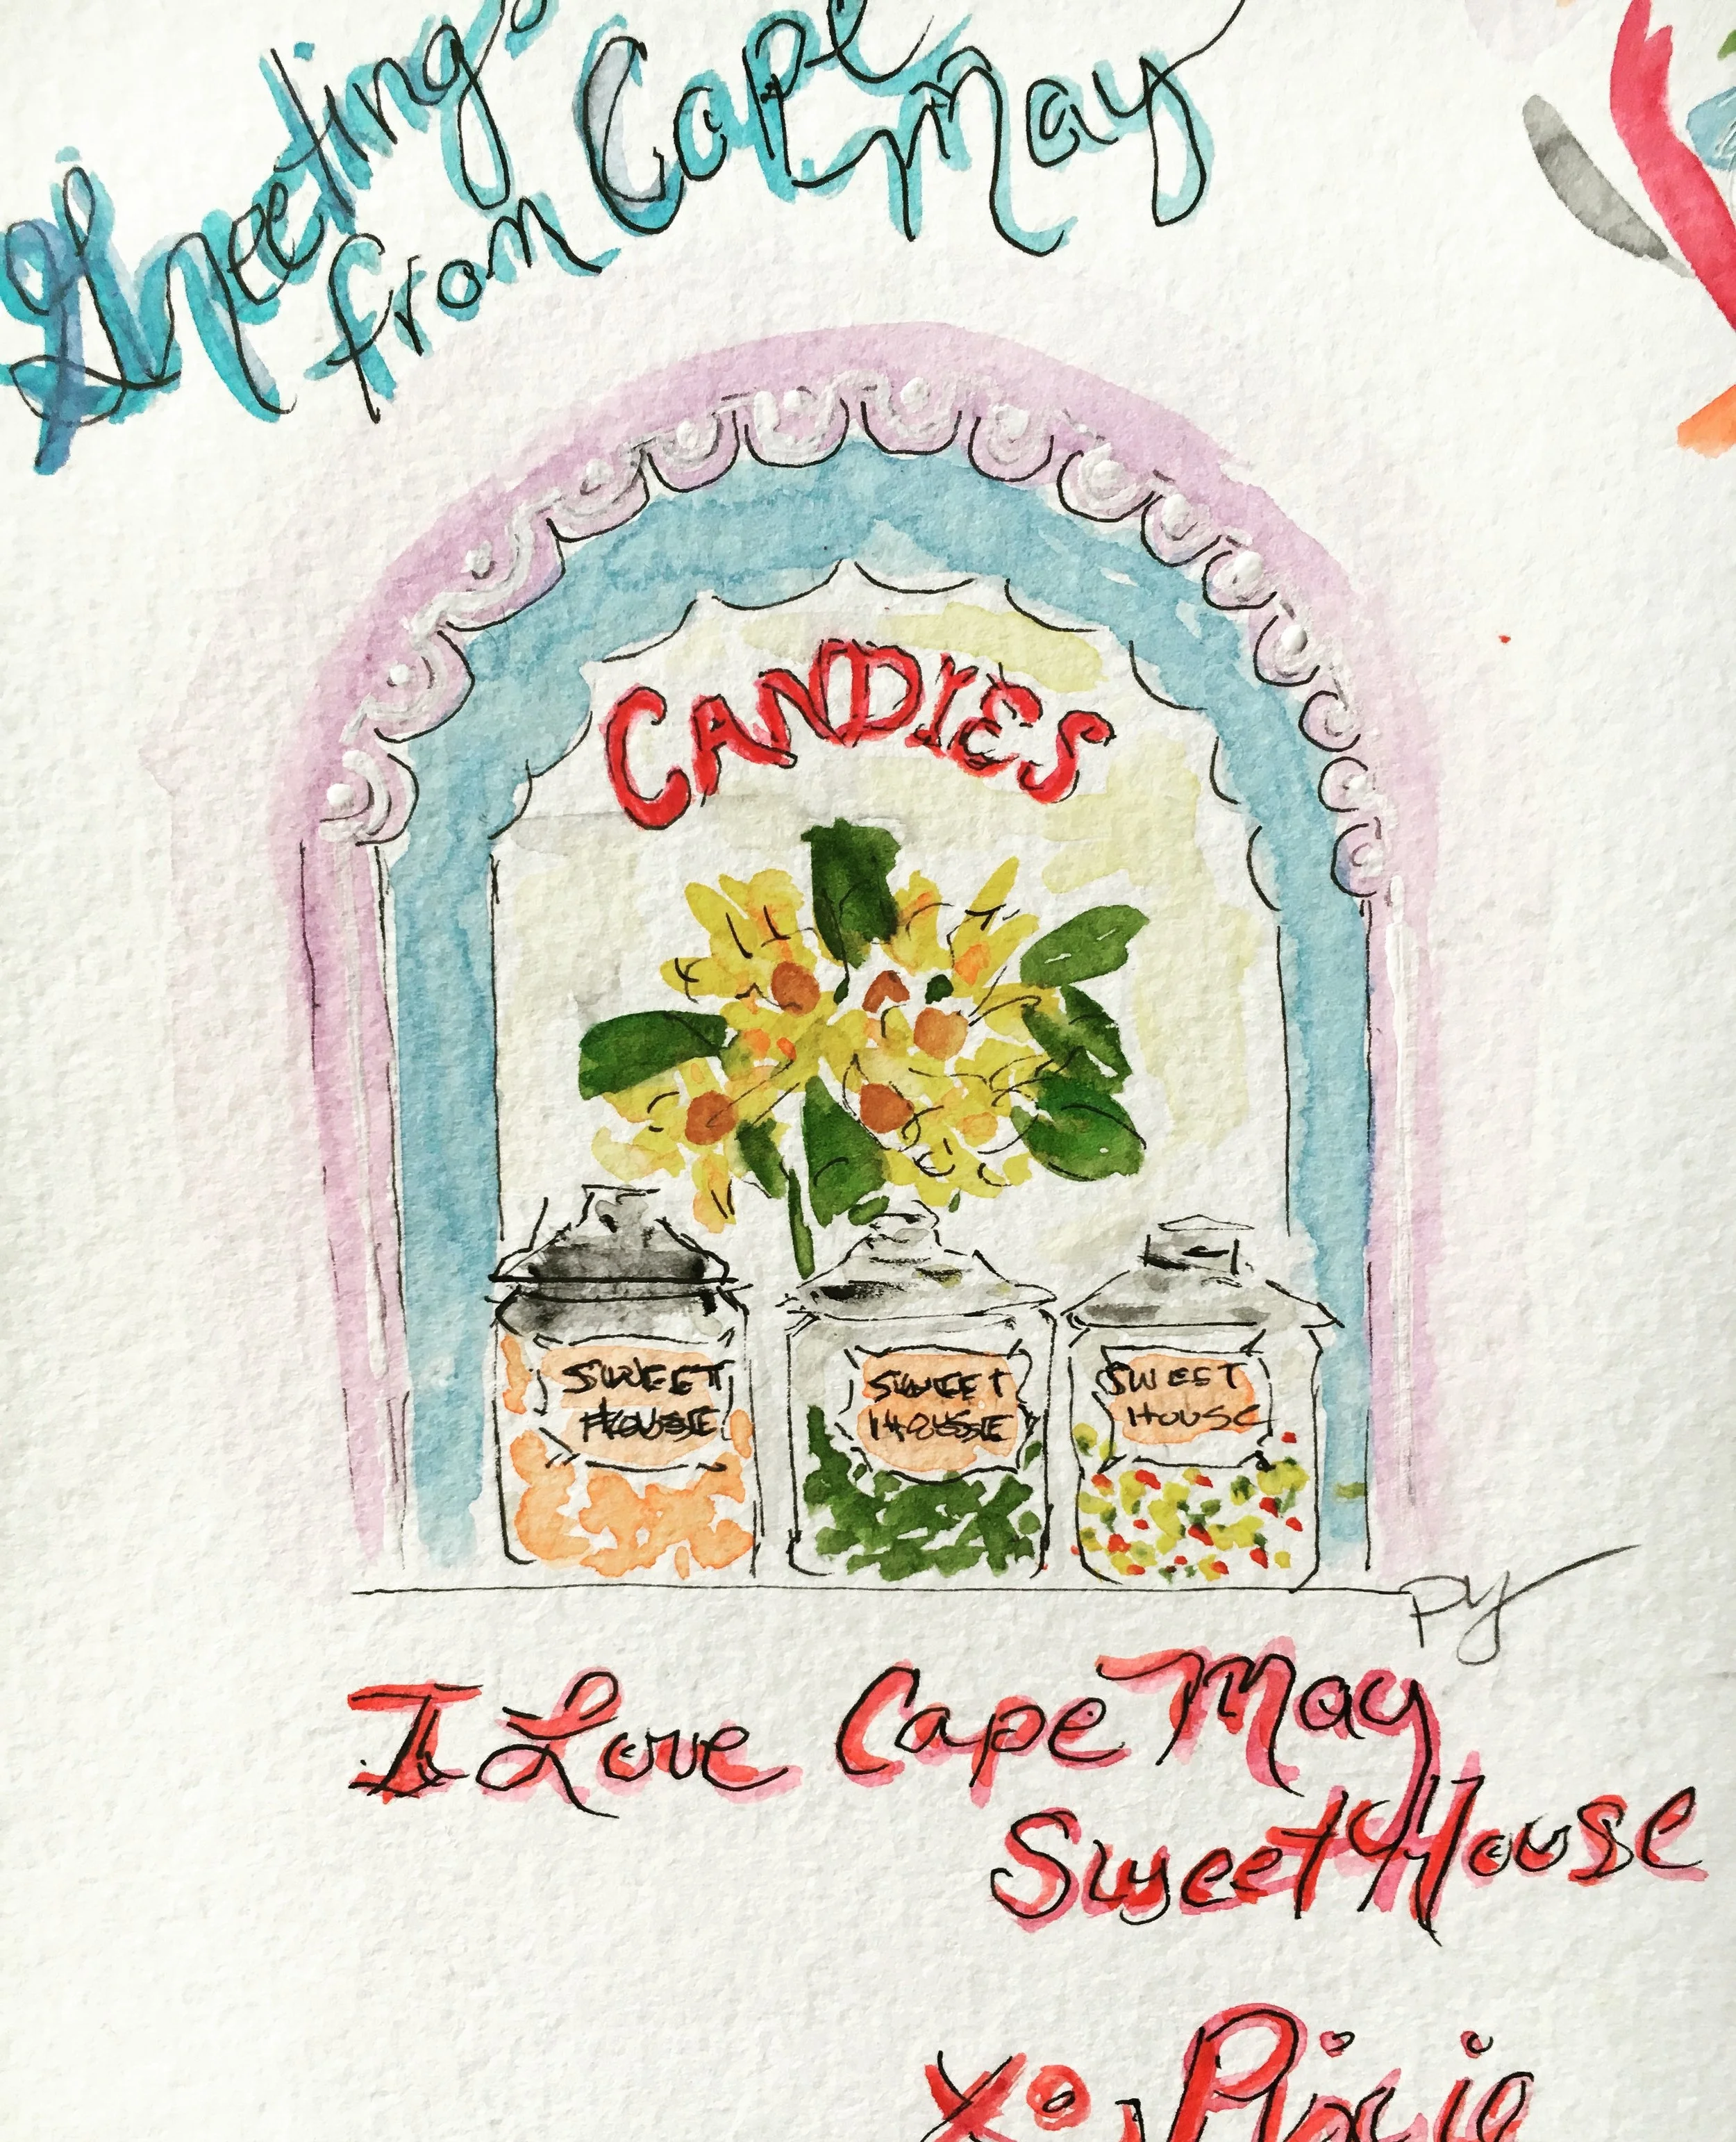 Greetings
from Cape May
CANDIES
SWEET HOUSE
SWEET HOUSE
SWEET HOUSE
PY
I Love Cape May
Sweet House
Xo, Pixie